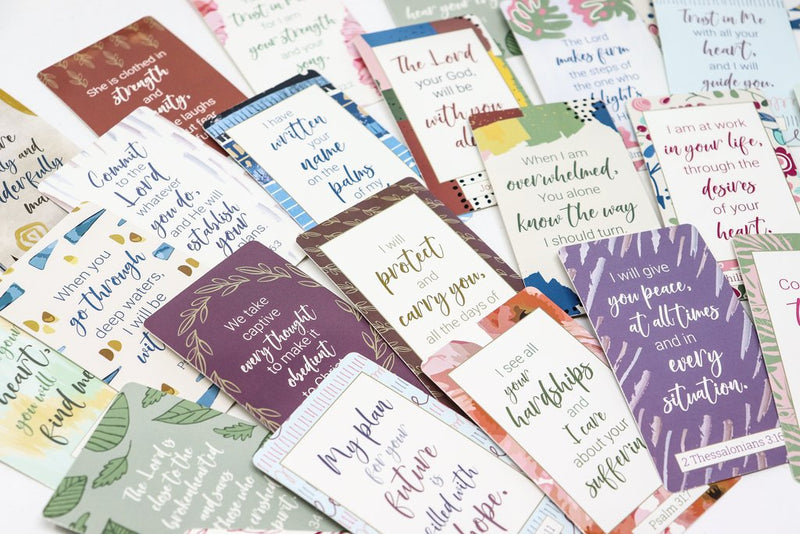 hear in
for I am
your strength
and your
song.
The Lord
makes firm
the steps of
the one who
delights
Trust in Me
with all your
heart,
and I will
guide you.
She is clothed in
strength
and
laughs
The Lord
your God,
will be
with you
I have
written
your
name
on the
palms
of my
When I am
overwhelmed,
You alone
know the way
I should turn.
I am at work
in your life,
through the
desires
of your
heart.
Commit
to the
Lord
whatever
you do,
and He will
establish
your
plans.
When you
go through
deep waters,
I will be
I will
protect
and
carry you,
all the days of
I will give
you peace,
at all times
and in
every
situation.
2 Thessalonians 3:16
We take
captive
every thought
to make it
obedient
to
I see all
your
hardships
and
I care
about your
Psalm 31:7
heart,
you will
find me
The Lord is
close to the
brokenhearted
and saves
those who
My plan
for your
future
is
filled with
hope.